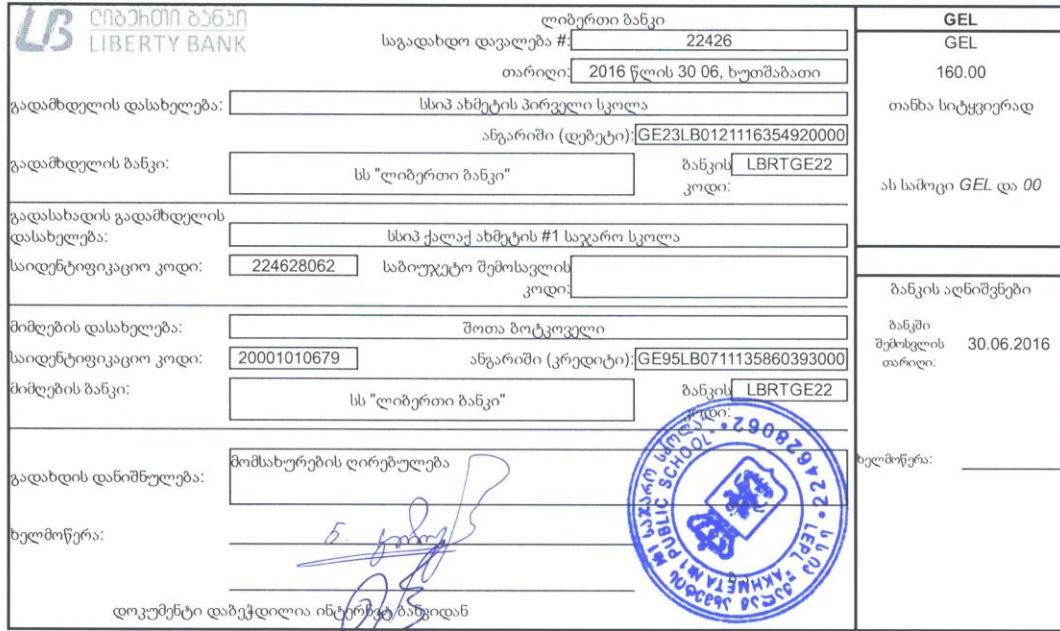 ლიბერთი ბანკი
LIBERTY BANK
ლიბერთი ბანკი
საგადახდო დავალება #: 22426
თარიღი: 2016 წლის 30 06, ხუთშაბათი
გადამხდელის დასახელება: სსიპ ახმეტის პირველი სკოლა
ანგარიში (დებეტი): GE23LB0121116354920000
გადამხდელის ბანკი: სს "ლიბერთი ბანკი" ბანკის კოდი: LBRTGE22
გადასახადის გადამხდელის
დასახელება: სსიპ ქალაქ ახმეტის #1 საჯარო სკოლა
საიდენტიფიკაციო კოდი: 224628062 საბიუჯეტო შემოსავლის
კოდი:
მიმღების დასახელება: შოთა ბოტკოველი
საიდენტიფიკაციო კოდი: 20001010679 ანგარიში (კრედიტი): GE95LB0711135860393000
მიმღების ბანკი: სს "ლიბერთი ბანკი" ბანკის კოდი: LBRTGE22
გადახდის დანიშნულება: მომსახურების ღირებულება
ხელმოწერა:
დოკუმენტი დაბეჭდილია ინტერნეტ ბანკიდან
GEL
GEL
160.00
თანხა სიტყვიერად
ას სამოცი GEL და 00
ბანკის აღნიშვნები
ბანკში
შემოსვლის
თარიღი: 30.06.2016
ხელმოწერა:
LEPL "AKHMETA №1 PUBLIC SCHOOL"
224628062